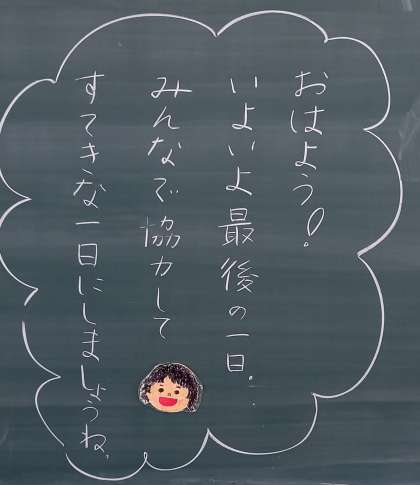 おはよう!
いよいよ最後の一日。
みんなで協力して
すてきな一日にしましょうね。